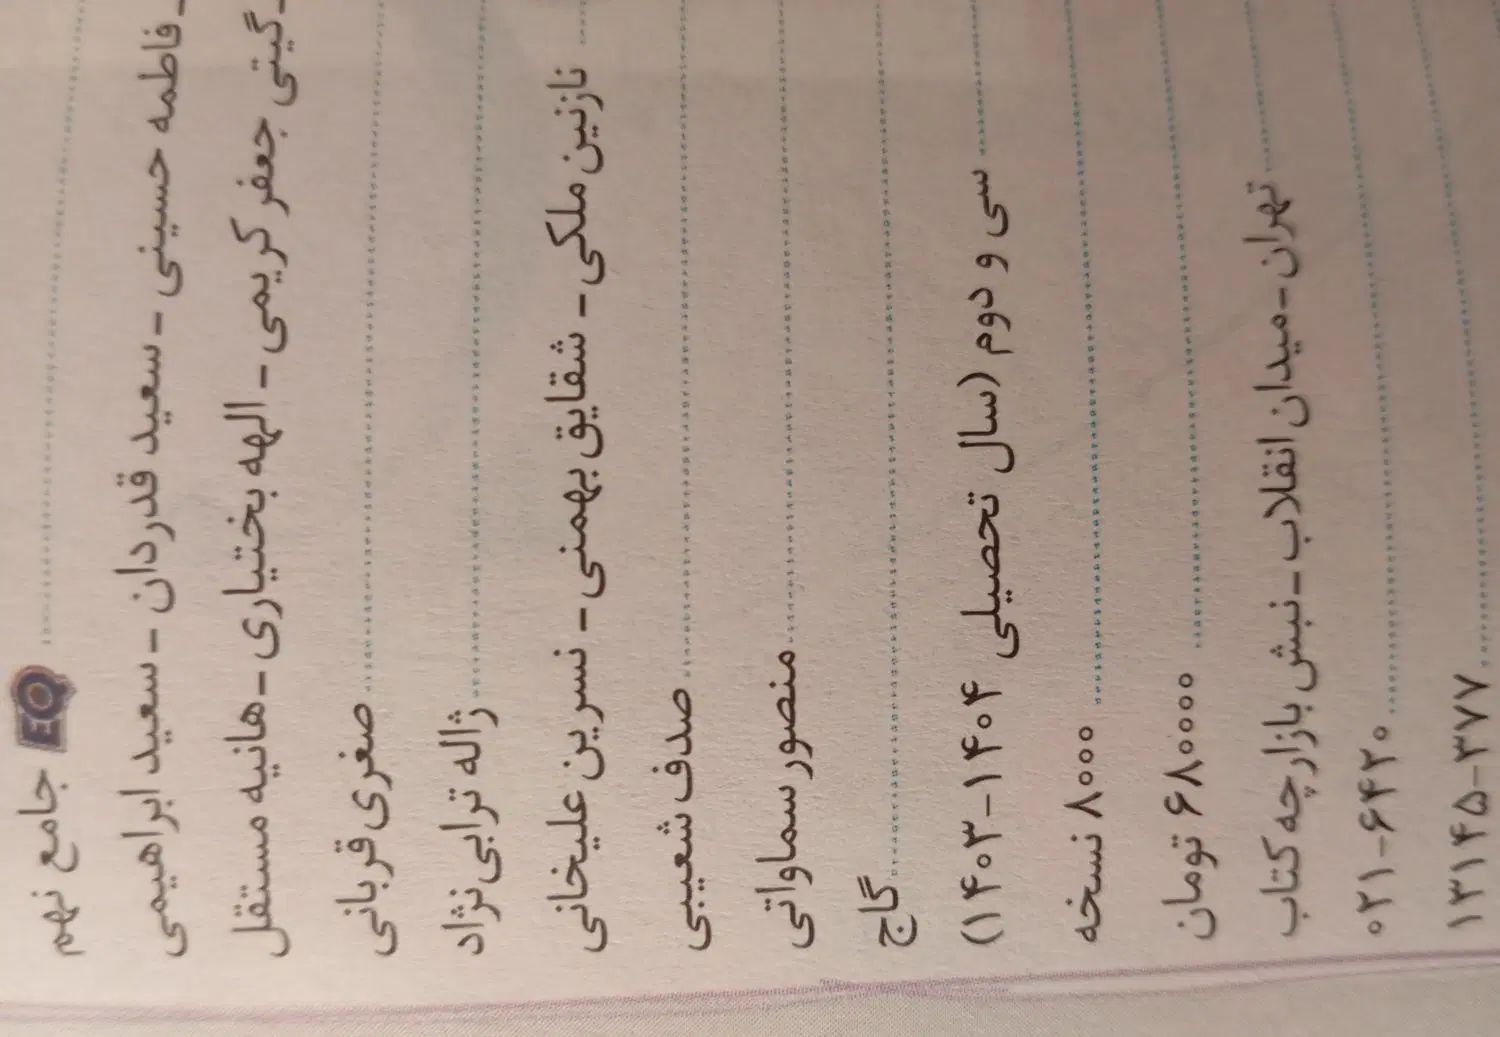 EQ جامع نهم
- فاطمه حسینی - سعید قدردان - سعید ابراهیمی
- گیتی جعفر کریمی - الهه بختیاری - هانیه مستقل
صغری قربانی
ژاله ترابی نژاد
نازنین ملکی - شقایق بهمنی - نسرین علیخانی
صدف شعیبی
منصور سماواتی
گاج
سی و دوم (سال تحصیلی ۱۴۰۴-۱۴۰۳)
۸۰۰۰ نسخه
۶۸۰۰۰۰ تومان
تهران - میدان انقلاب - نبش بازارچه کتاب
۰۲۱-۶۴۲۰
۱۳۱۴۵-۳۷۷